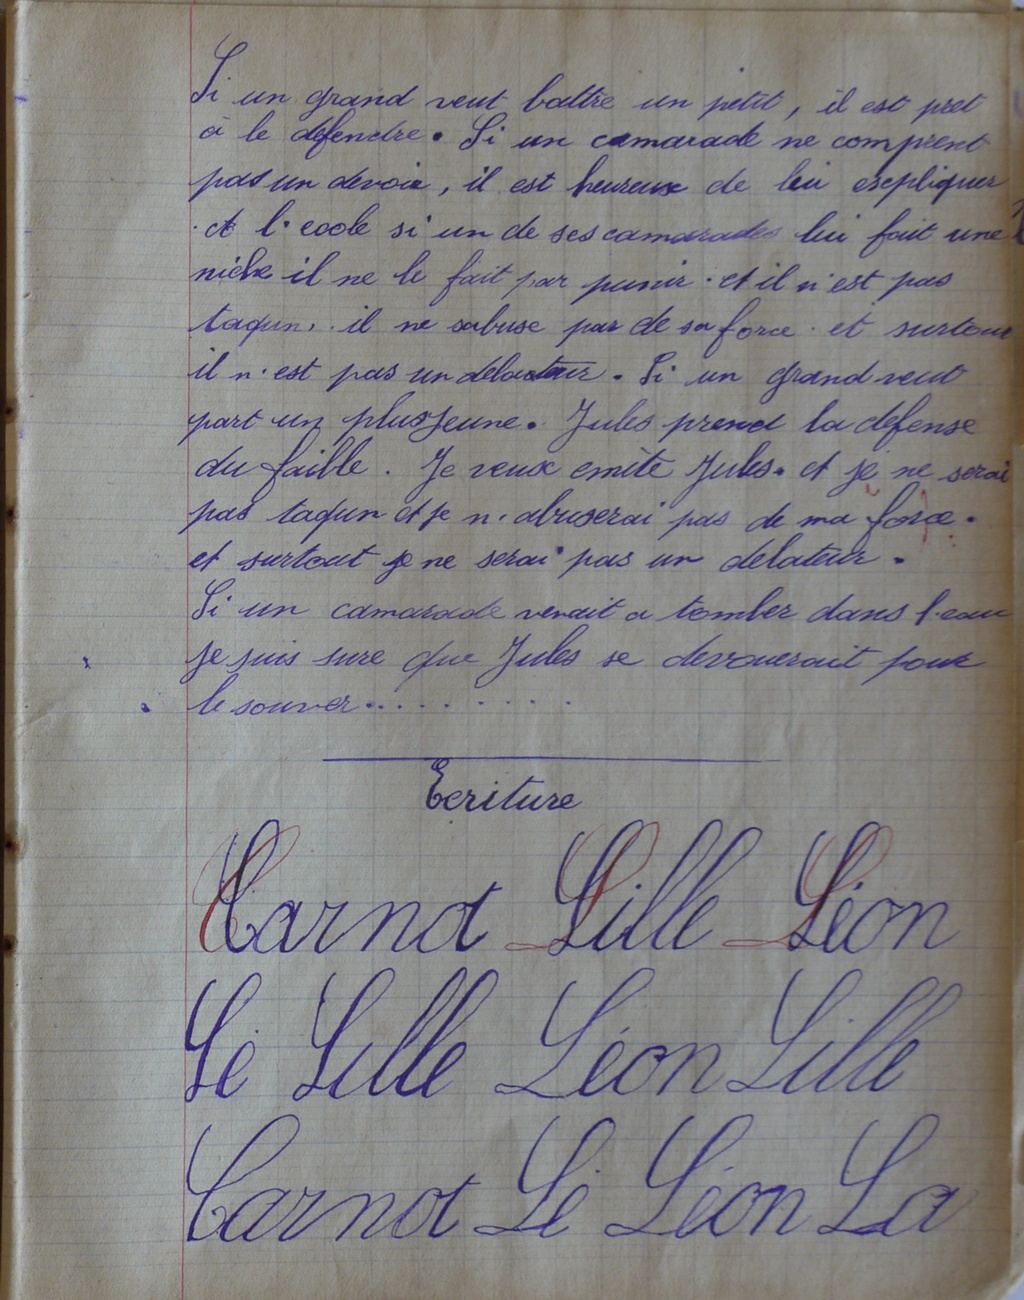 Si un grand veut battre un petit, il est pret
à le defendre. Si un camarade ne comprent
pas un devoir, il est heureux de lui expliquer
. A l'ecole si un de ses camarades lui fait une
niche il ne le fait par punir. et il n'est pas
taquin. il ne sabuse par de sa force. et surtout
il n'est pas un delateur. Si un grand veut
part un plus jeune. Jules prend la defense
du faille. Je veux emite Jules. et je ne serai
pas taqun et je n'abuserai pas de ma force.
et surtout je ne serai pas un delateur.
Si un camarade venait a tomber dans l'eau
je suis sure que Jules se devouerait pour
le souver..........
Ecriture
Carnot Lille Léon
Lé Lille Léon Lille
Carnot Lé Léon La